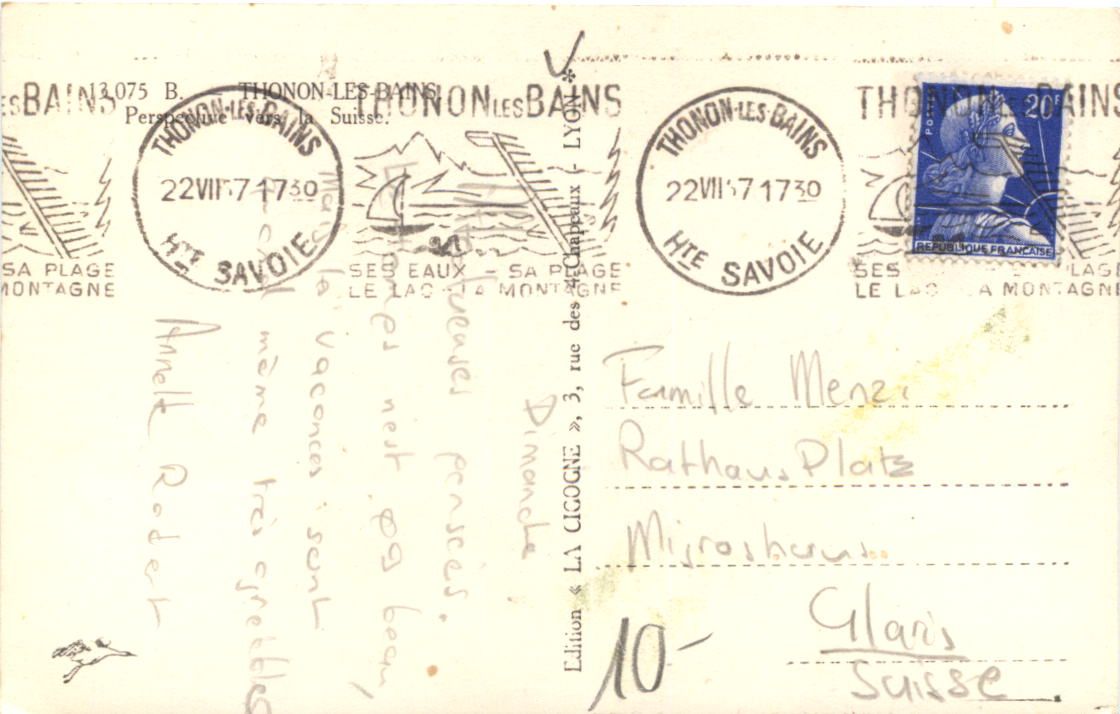 13.075 B. THONON-LES-BAINS
Perspective vers la Suisse.
LES BAINS
SA PLAGE
MONTAGNE
THONON-LES-BAINS
22 VII 57 1730
HTE SAVOIE
THONON LES BAINS
SES EAUX - SA PLAGE
LE LAC - LA MONTAGNE
THONON-LES-BAINS
22 VII 57 1730
HTE SAVOIE
THONON LES BAINS
SES PLAGE
LE LAC LA MONTAGNE
POSTES
20F
REPUBLIQUE FRANÇAISE
Edition « LA CIGOGNE », 3, rue des Chapeaux - LYON *
Dimanche
pensées.
Le temps n'est pas beau,
Mais la vacances sont
quand même très agréables
Annett Rodert
Famille Menzi
Rathaus Platz
Migroshaus
Glaris
Suisse
10-